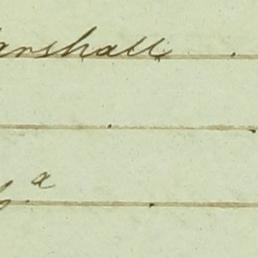 arshall
a